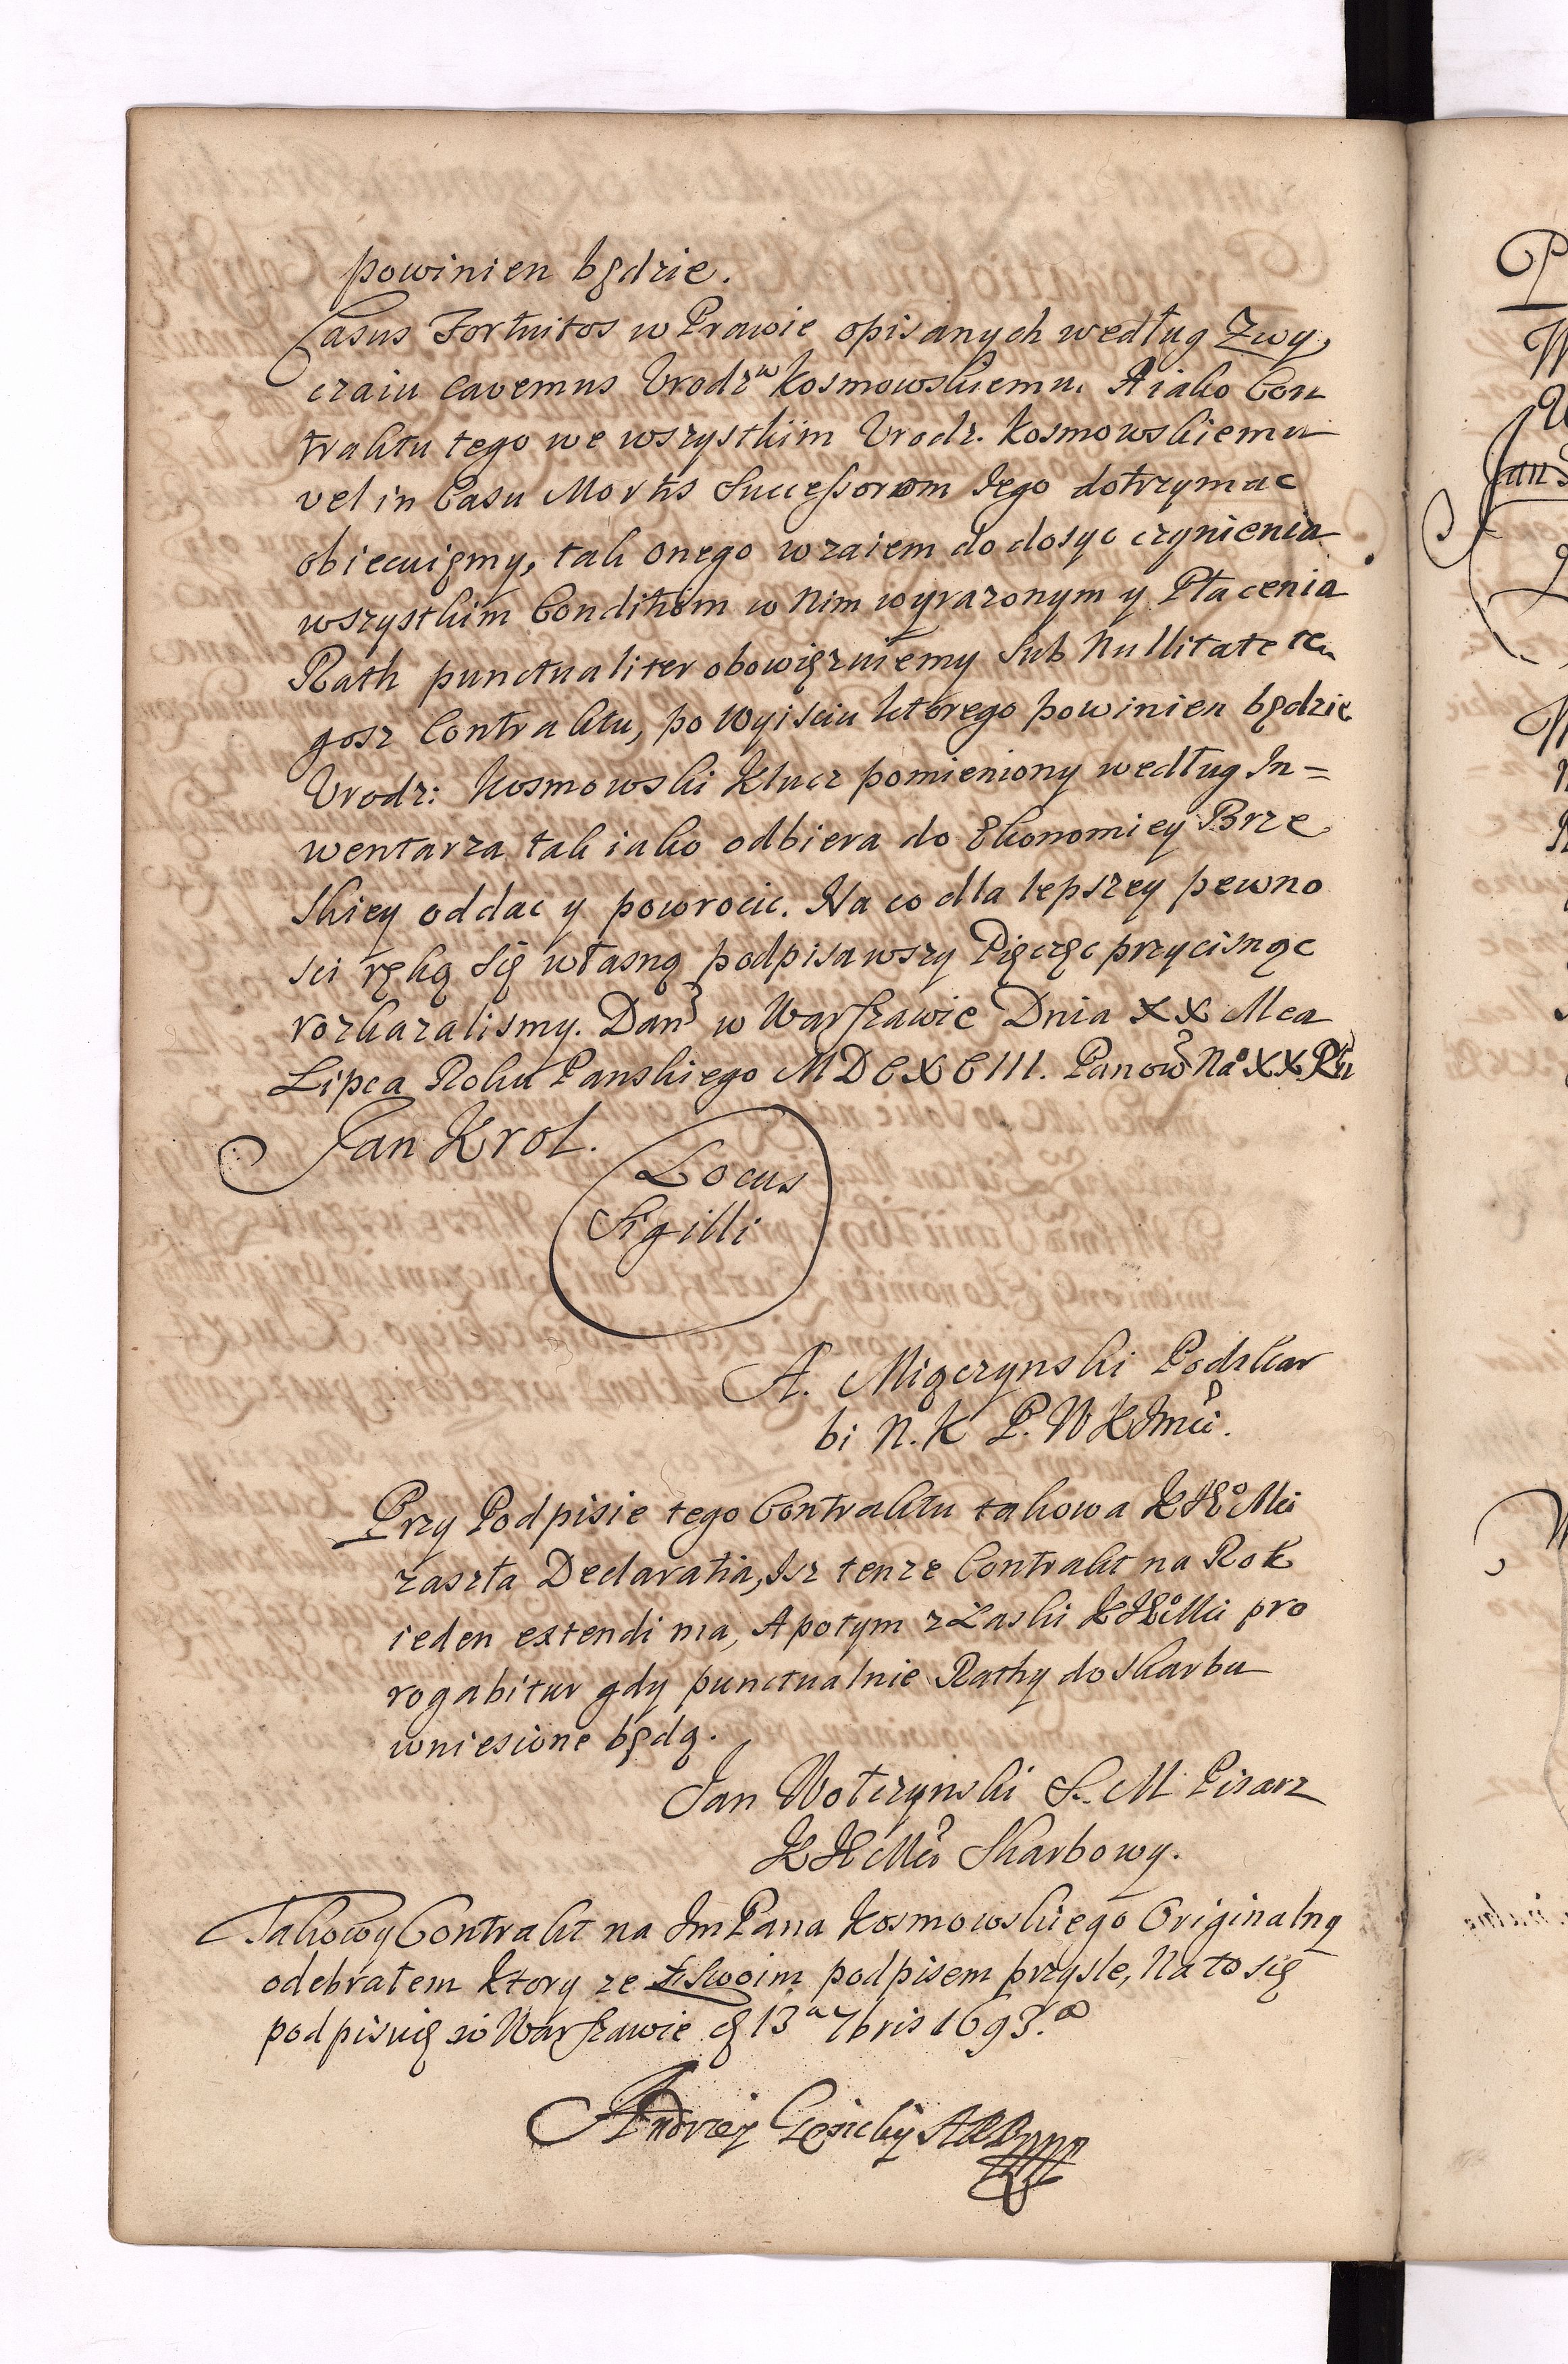 powinien będzie.
Casus Fortuitos w Prawie opisanych według Zwy,
czaiu cavemus Vrodzu Kosmowskiemu. A iako Con
traktu tego we wszystkim Vrodz. Kosmowskiemu
vel in Casu Mortis Successorom Jego dotrzymac
obiecuięmy, tak onego wzaiem do dosyc czynienia
wszystkim Conditiom w Nim wyrazonym y Płacenia
Rath punctualiter obowięzuiemy sub Nullitate te
gosz Contraktu, po Wyisciu ktorego powinien będzie
Vrodz: Kosmowski Klucz pomieniony według In=
wentarza tak iako odbiera do Ekonomiey Brze
skiey oddac y powrocic. Na co dla lepszey pewno
sci ręką się własną podpisawszy Pięczęc przycisnąc
rozkazalismy. Dan w Warszawie Dnia XX Mca
Lipca Roku Panskiego MDCXCIII. Panow Na° XX Ru
Jan Krol.
Locus
Sigilli
A. Miączynski Podskar
bi N. K P. W K Jmci.
Przy Podpisie tego Contraktu takowa K JK°Mci
zaszła Declaratia, Isz tenze Contrakt na Rok
ieden extendi ma, A potym z Łaski K JK°Mci pro
rogabitur gdy punctualnie Rathy do Skarbu
wniesione będą.
Jan Wołczynski S. M Pisarz
K JK Mci Skarbowy.
Takowy Contrakt na Jm Pana Kosmowskiego Originalny
odebrałem Ktory ze Zeswoim podpisem przysle, Na to się
podpisuię w Warszawie d 13a 7bris 1693.°
Andrzey